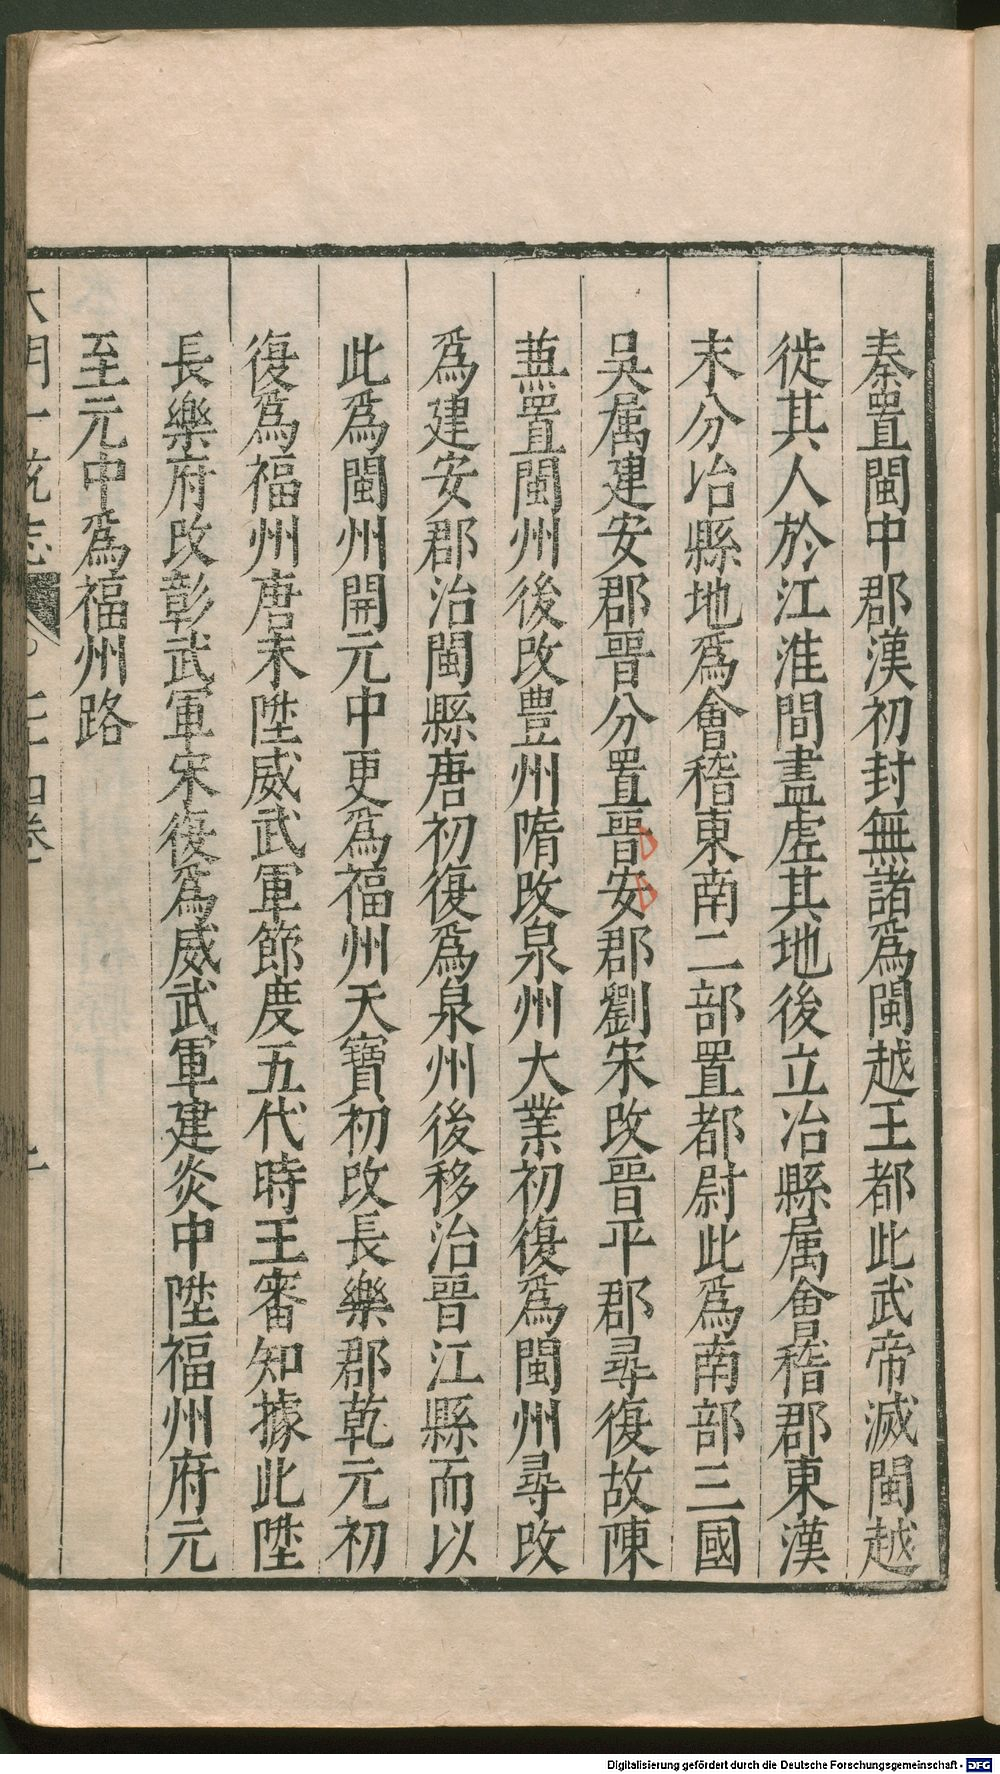 秦置閩中郡漢初封無諸爲閩越王都此武帝滅閩越
徙其人於江淮間盡虛其地後立冶縣属會稽郡東漢
末分冶縣地爲會稽東南二部置都尉此爲南部三國
吳属建安郡晉分置晉安郡劉宋改晉平郡尋復故陳
兼置閩州後改豊州隋改泉州大業初復爲閩州尋改
爲建安郡治閩縣唐初復爲泉州後移治晉江縣而以
此爲閩州開元中更爲福州天寶初改長樂郡乾元初
復爲福州唐末陞威武軍節度五代時王審知據此陞
長樂府改彰武軍宋復爲威武軍建炎中陞福州府元
至元中爲福州路
大明一統志
Digitalisierung gefördert durch die Deutsche Forschungsgemeinschaft - DFG